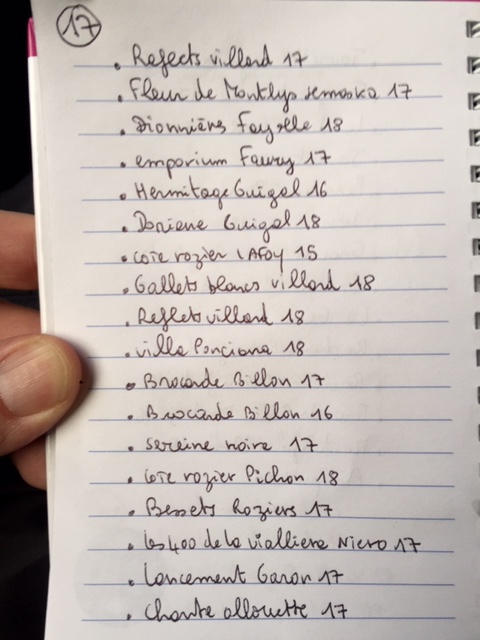 17
. Refects villard 17
. Fleur de Montlys semaska 17
. Dionnières Fayolle 18
. emporium Faury 17
. Hermitage Guigal 16
. Doriane Guigal 18
. cote rozier LAFOY 15
. Gallets blancs villard 18
. Reflets villard 18
. villa Ponciana 18
. Brocarde Billon 17
. Brocarde Billon 16
. sereine noire 17
. cote rozier Pichon 18
. Bessets Roziers 17
. les 400 de la vialliere Niero 17
. Lancement Garon 17
. chante allouette 17